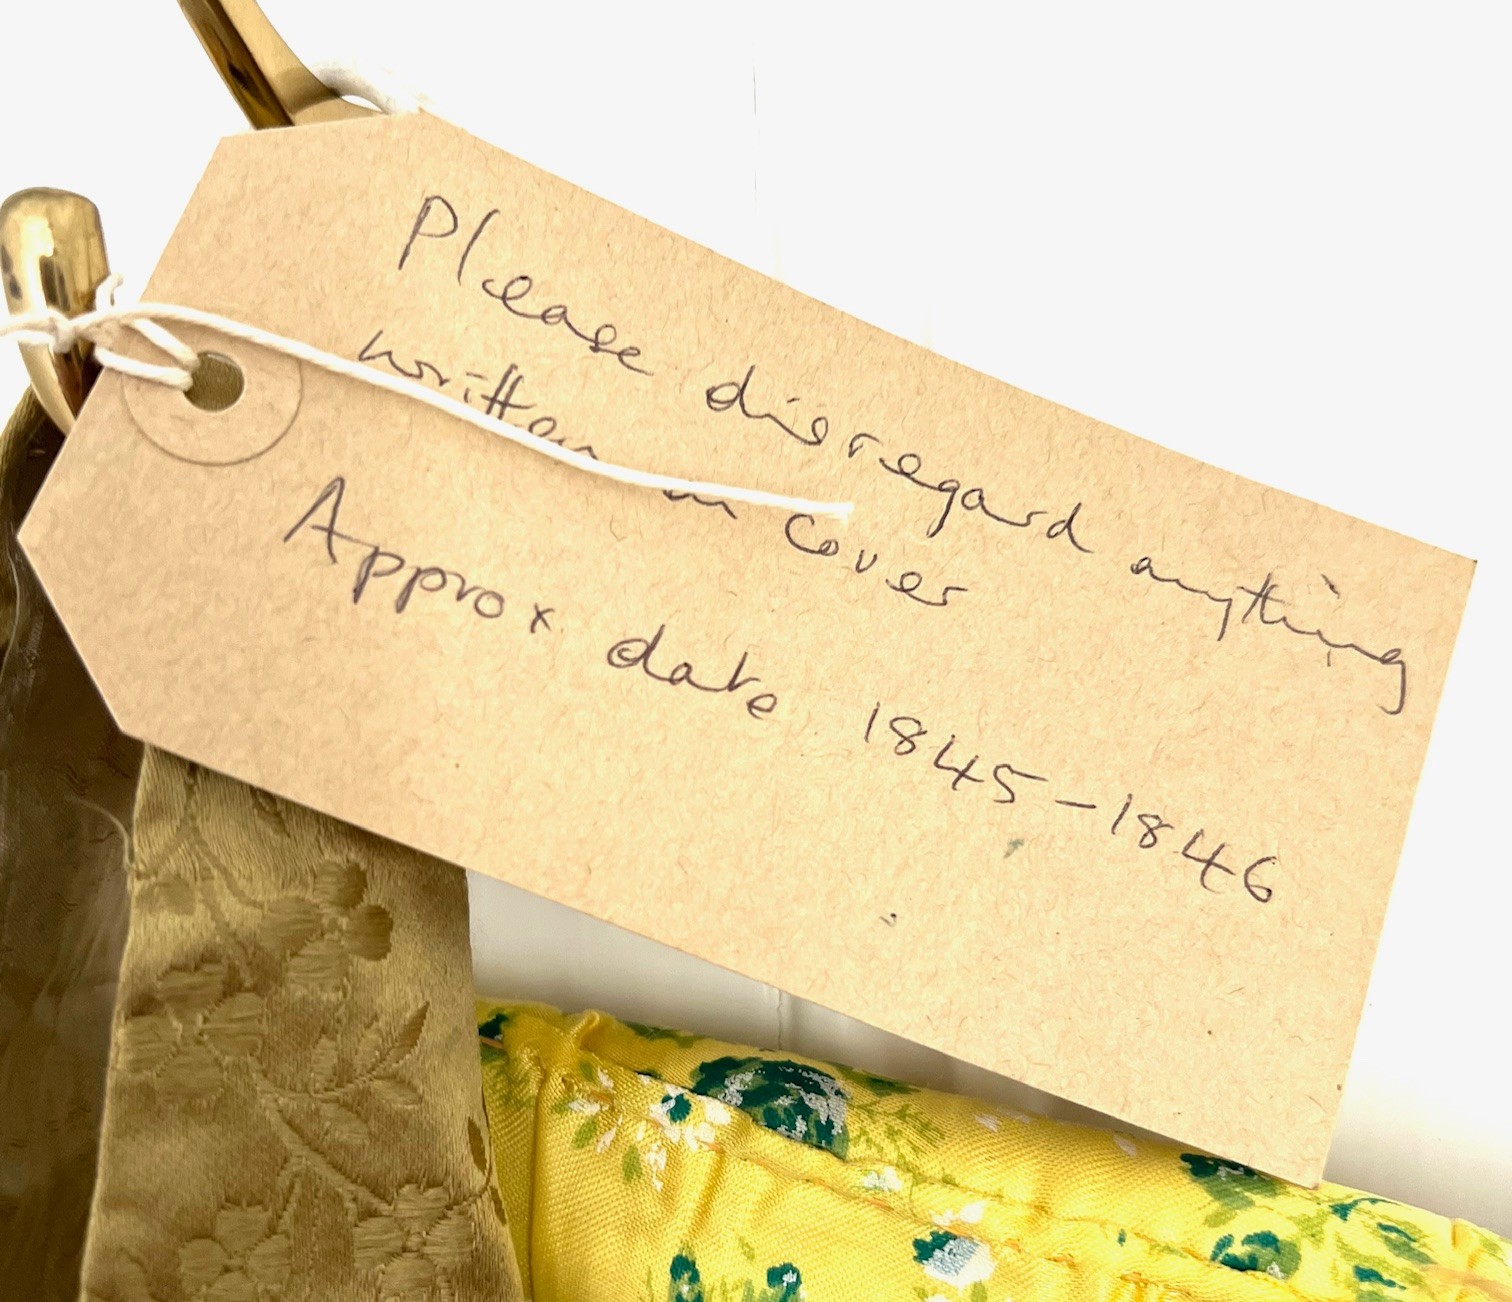 Please disregard anything
written on cover
Approx date 1845-1846